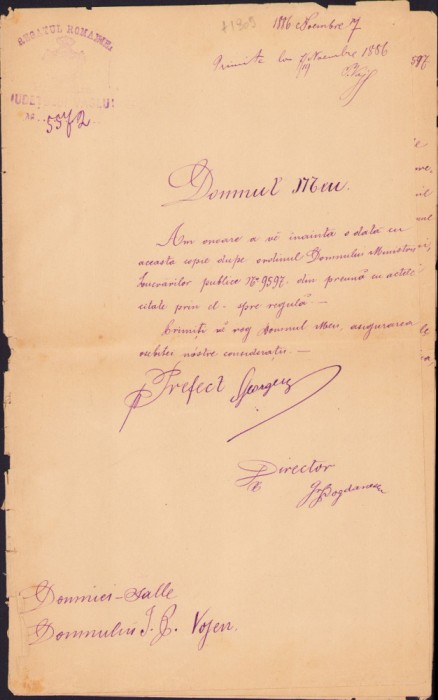 REGATUL ROMANIEI
5572
1886 Noembre 7
Primită la 7/19 Noembre 1886
Domnul Meu.
Am onoare a vĕ înainta odată cu
aceasta copie dupe ordinul Domnului Ministru
Lucrărilor publice No 9597. din preună cu actele
citate prin el - spre regulă —
Primiți vĕ rog Domnul Meu, asigurarea
osebitei nóstre consideratii. —
Prefect
Director
Gr Bogdanescu
Domniei-Salle
Domnului J. G.